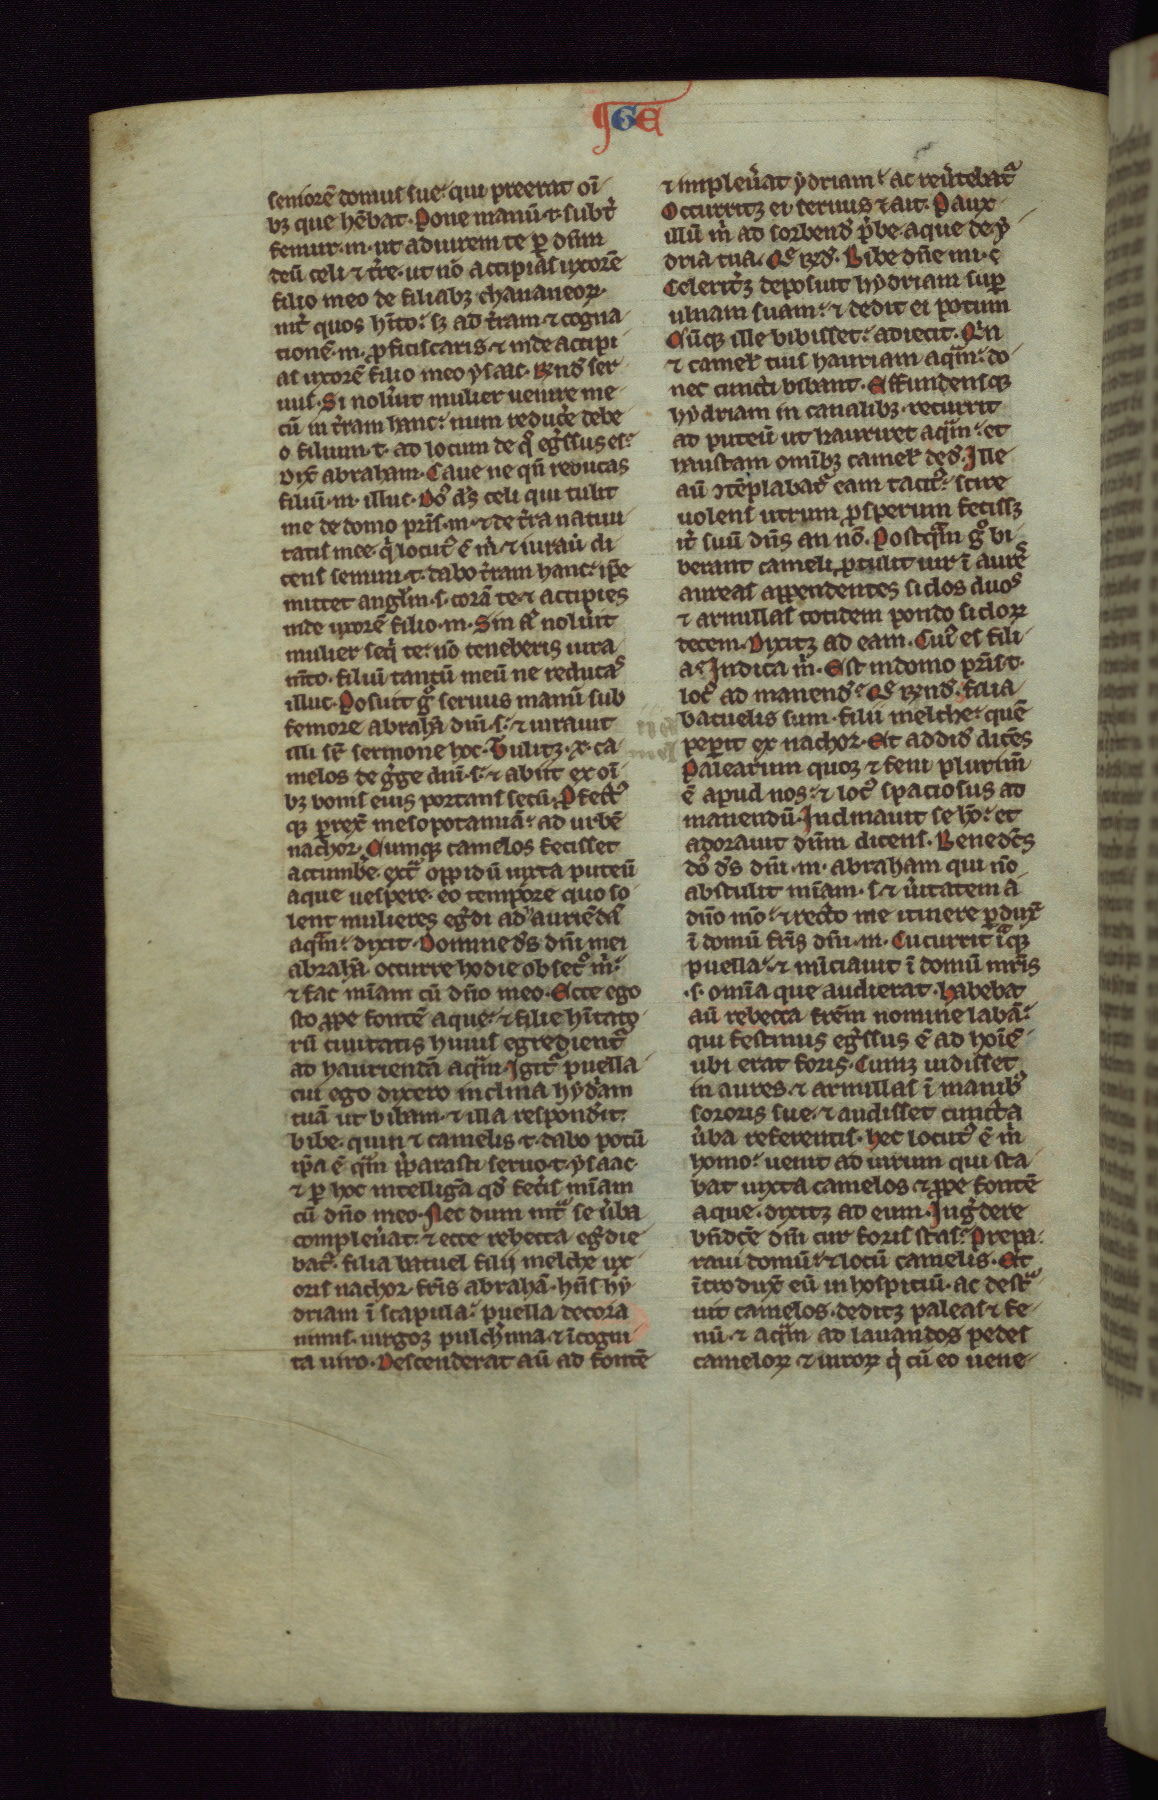 GE
seniorē domus sue· qui preerat oī
bꝫ que hēbat· Pone manū· t· subt̉
femur· m· ut adiurem te ꝑ dnm̄
deū celi ⁊ tr̄e· ut nō accipias uxorē
filio meo de filiabꝫ chananeoꝝ·
int̉ quos hīto· sꝫ ad tr̄am ⁊ cogna
tionē· m· ꝓficiscaris· ⁊ inde accipi
as uxorē filio meo ysaac· Rn̄d ser
uus· Si nolủit mulier uenire me
cū in tr̄am hanc· num reduc̉e debe
o filium· t· ad locum de qͦ eg̉ssus es·
Dix̄ abraham· Caue ne qn̄ reducas
filiū· m· illuc· Dn̄s dꝰs celi qui tulit
me de domo pr̄is· m· ⁊ de tr̄a natiui
tatis mee· qi locutꝰ ē m̉ ⁊ iuraủ di
cens semini· t· dabo tr̄am hanc· ip̄e
mittet angl̄m· s· corā te· ⁊ accipies
inde uxorē filio· m· Sin at̉ nolủit
mulier seq̉ te· nō teneberis iura
mīto· filiū tantū meū ne reducas
illuc· Posuit gͦ seruus manū sub
femore abrahā dn̄i· s· ⁊ iurauit
illi sr̄ sermone hoc· Tulitꝫ· x· ca
melos de g̉ge dn̄i· s· ⁊ abiit ex oī
bꝫ bonis eius portans secū· ꝓfectꝰ
qꝫ ꝑrex̄ mesopotamiā· ad urbē
nachor· Cumqꝫ camelos fecisset
accumbẻ extᵃ oppidū iuxta puteū
aque uespere· eo tempore quo so
lent mulieres eg̉di ad auriēdā
aqᵃm· dixit· Domine dꝰs dn̄i mei
abrahā· occurre hodie obsecͦ m̉·
⁊ fac mīam cū dn̄o meo· Ecce ego
sto ꝓpe fontē aque· ⁊ filie hītato
rū ciuitatis huius egredientᵃ
ad hauriendā aqᵃm· Igitᵃ puella
cui ego dixero inclina hydᵃm
tuā ut bibam· ⁊ illa respondỉt·
bibe· quin ⁊ camelis· t· dabo potū
ip̄a ē qᵃm p̄parasti seruo· t· ysaac·
⁊ ꝑ hoc intelligā qd̄ fec̉is mīam
cū dn̄o meo· Nec dum intᵃ se ủba
compleủat· ⁊ ecce rebecca eg̉die
batᵃ· filia batuel filij melche ux
oris nachor· fr̄is abrahā· hn̄s hy
driam ī scapula· puella decora
nimis· uirgoqꝫ pulch̉rima· ⁊ īcogni
ta uiro· Descenderat aū ad fontē
⁊ impleủat ydriam· ac reủtebatᵃ
Occurritqꝫ ei seruus ⁊ ait· Paux
illū m̉ ad sorbend̄ p̄be aque de y
dria tua· Qͤ Rn̄d· Bibe dn̄e mi· ⁊
Celeritꝫ deposuit hydriam suꝑ
ulnam suam· ⁊ dedit ei potum
Cūqꝫ ille bibisset· adiecit· Qn̄
⁊ camel̄ tuis hauriam aqᵃm· do
nec cuncti bibant· Effundensqꝫ
hydriam in canalibꝫ· recurrit
ad puteū ut hauriret aqᵃm· et
haustam omibꝫ camel̄ ded̄· Ille
aū ɔtēplabatᵃ eam tacitꝰ· scire
uolens utrum ꝓsperum fecissꝫ
it̉ suū dn̄s an nō· Postqᵃm gͦ bi
berant cameli ꝓtulit uir ī aures
aureas appendentes siclos duos
⁊ armillas totidem pondo sicloꝝ
decem· Dixitqꝫ ad eam· Cuiꝰ es fili
a· Indica m̉· Est indomo pr̄is· t·
locꝰ ad manend̄· Qͤ Rn̄d· filia
batuelis sum· filii melche· quē
peperit ex nachor· Et addid̄ dicēs
Palearum quoqꝫ ⁊ feni plurim̄
ē apud nos· ⁊ locꝰ spaciosus ad
manendū· Inclinauit se hō· et
adorauit dn̄m dicens· Benedc̄s
dn̄s dꝰs dn̄i· m· abraham qui nō
abstulit mīam· s· ⁊ ủitatem a
dn̄o mō· ⁊ recto me itinere ꝑdux̄
ī domū fr̄is dn̄i· m· Cucurrit īqꝫ
puella· ⁊ nūciauit ī domū mr̄is
·s· omīa que audierat· habebat
aū rebecca frēm nomine labā·
qui festinus eg̉ssus ē ad hoīē
ubi erat foris· Cumqꝫ uidisset
in aures· ⁊ armillas ī manibꝰ
sororis sue· ⁊ audisset cuncta
ủba referentis· hec locutꝰ ē m̉
homo· uenit ad uirum qui sta
bat iuxta camelos ⁊ ꝓpe fontē
aque· dixitqꝫ ad eum· Ing̉dere
bn̄dc̄e dn̄i cur foris stas· Prepa
raui domū· ⁊ locū camelis· Et
ītrodux̄ eū in hospiciū· ac destᵃ
uit camelos· deditqꝫ paleas ⁊ fe
nū· ⁊ aqᵃm ad lauandos pedes
cameloꝝ ⁊ uiroꝝ q̉ cū eo uene